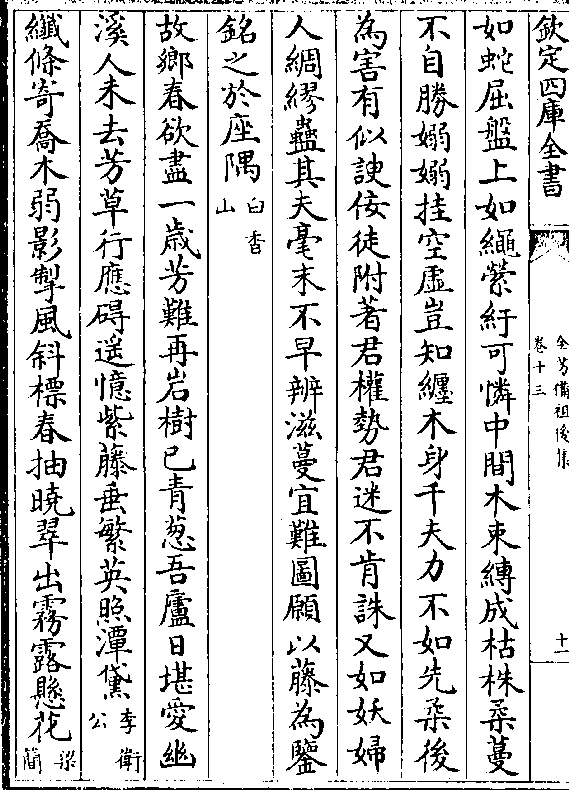 欽定四庫全書
全芳備祖後集
卷十三
十一
如蛇屈盤上如繩縈紆可憐中間木束縛成枯株柔蔓
不自勝嫋嫋挂空虛豈知纏木身千夫力不如先柔後
為害有似諛佞徒附著君權勢君迷不肯誅又如妖婦
人綢繆蠱其夫毫末不早辨滋蔓宜難圖願以藤為鑒
銘之於座隅白香山
故鄉春欲盡一歲芳難再岩樹已青葱吾廬日堪愛幽
溪人未去芳草行應碍遥憶紫藤垂繁英照潭黛李衛公
纎條寄喬木弱影掣風斜標春抽曉翠出霧露懸花梁簡